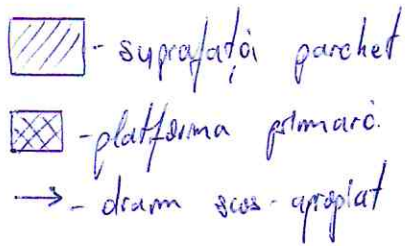 - suprafață parchet
- platforma primară.
- drum scos-apropiat